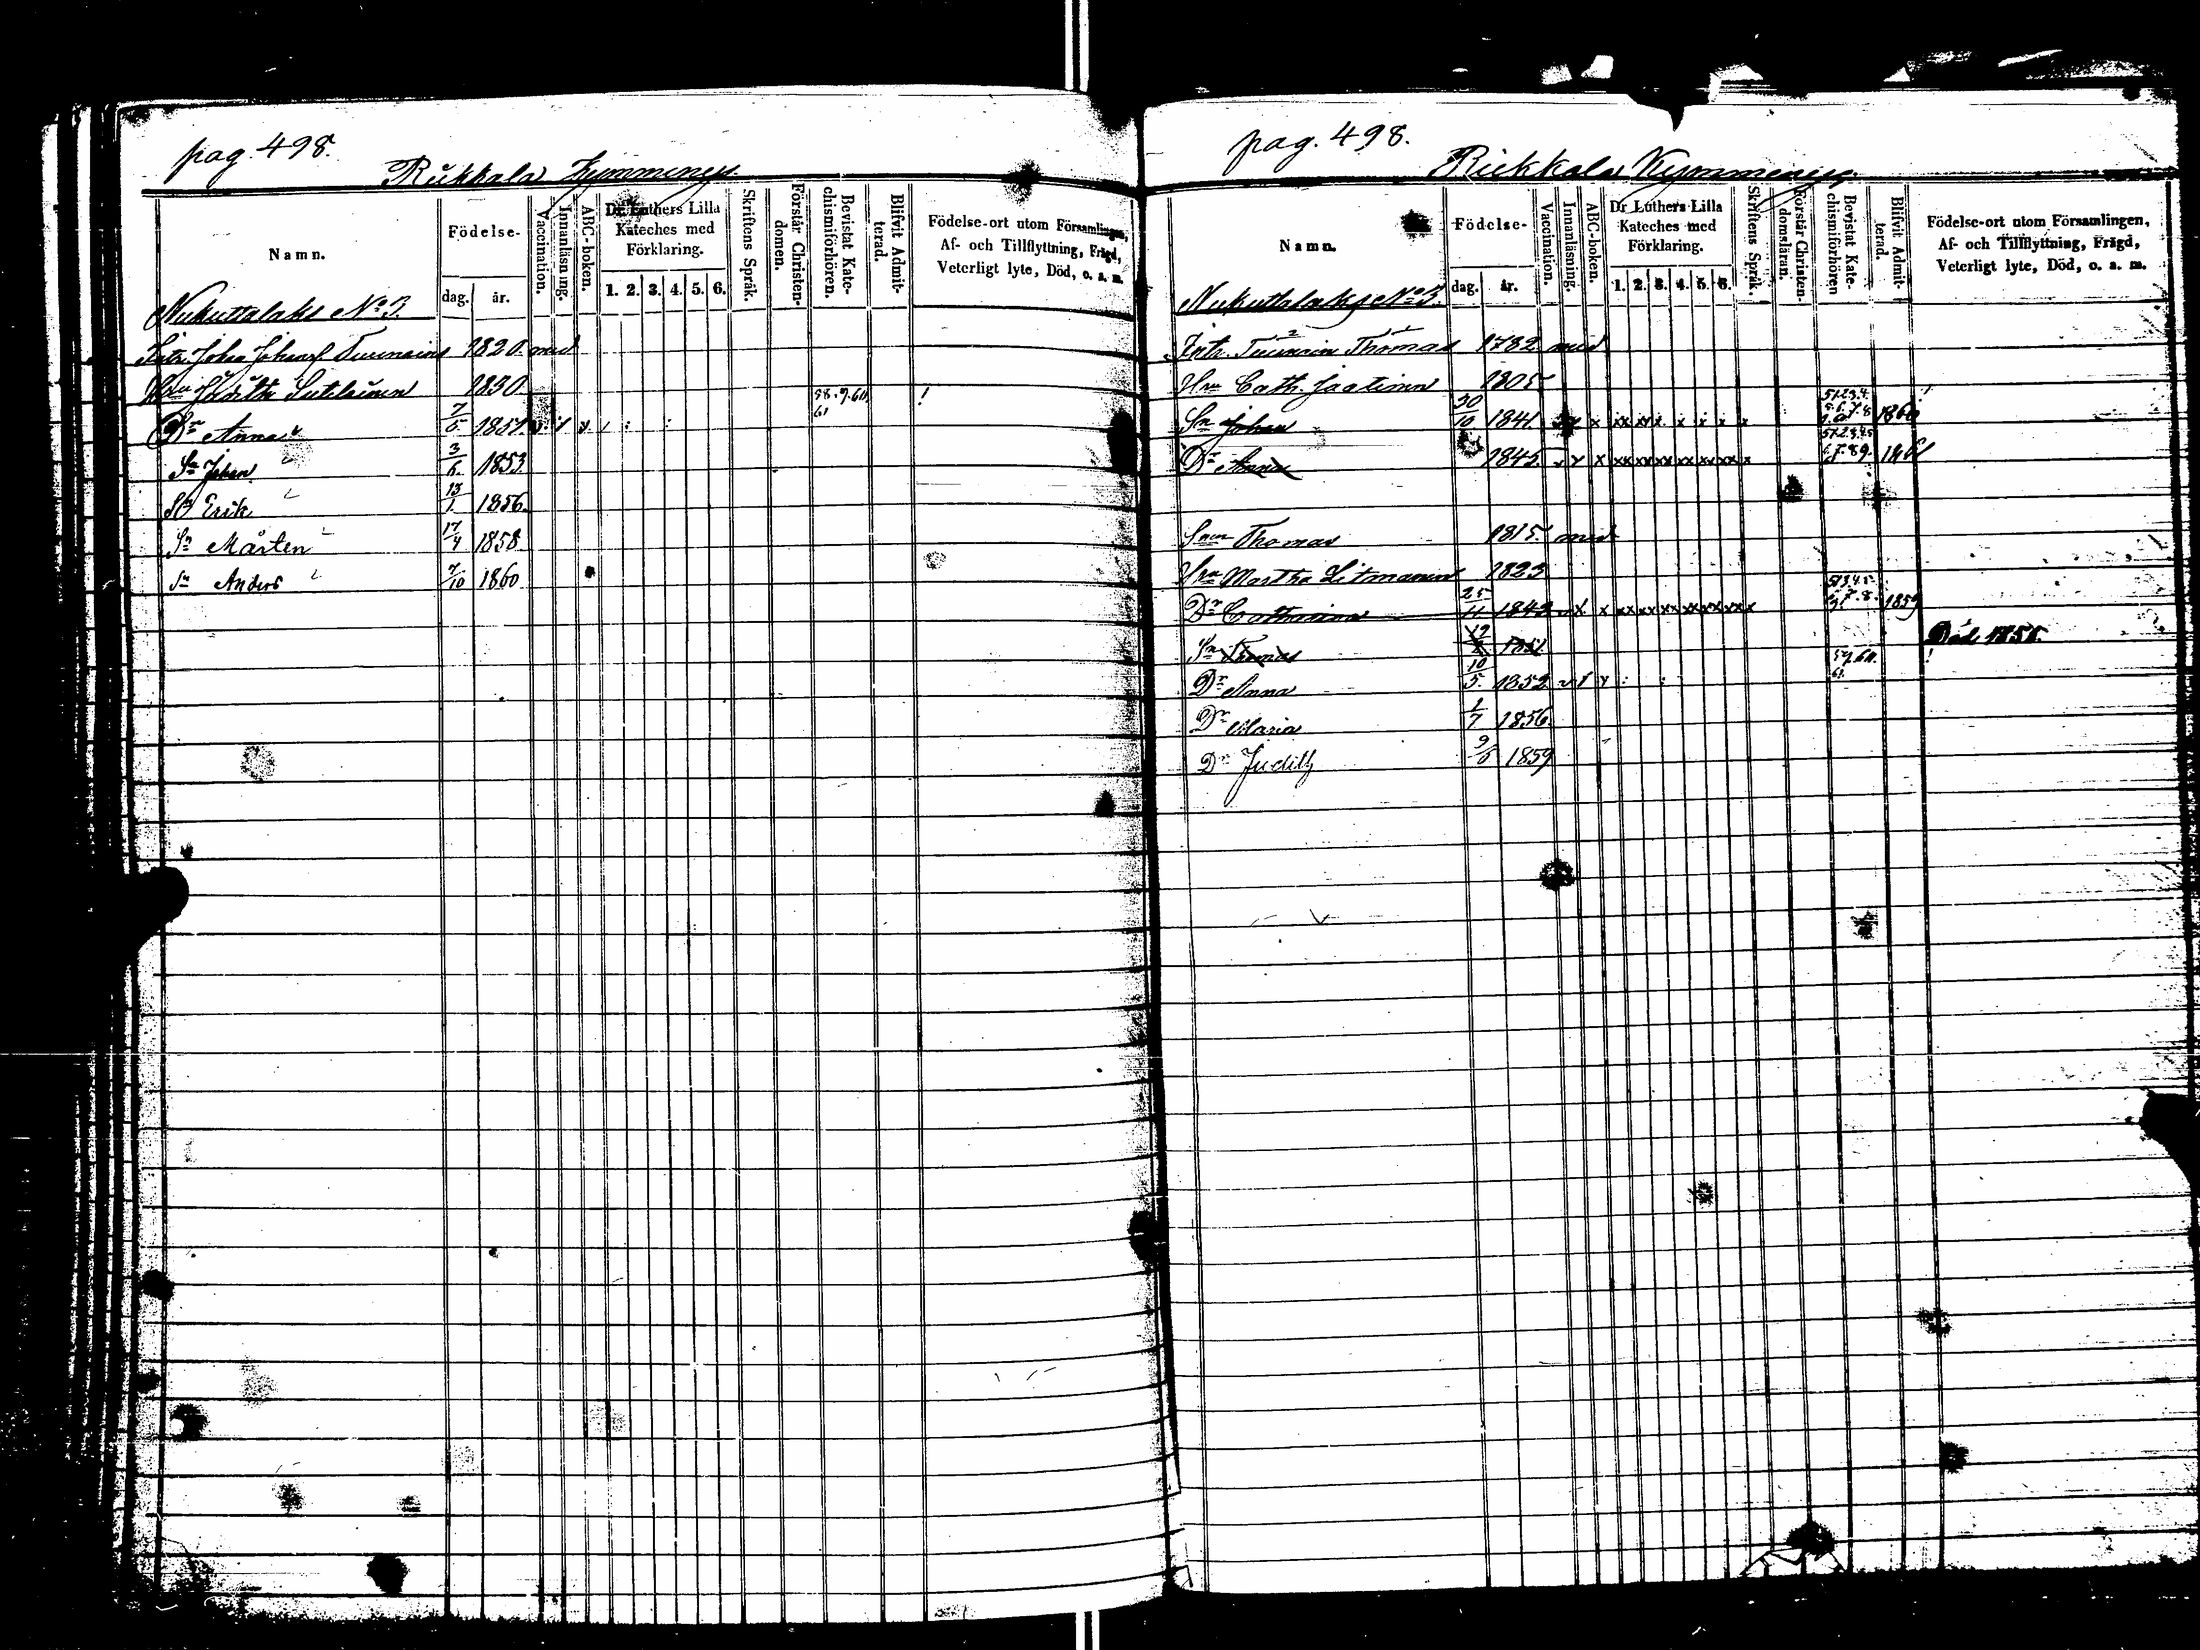 pag. 498.
Rükkala Kymmeneg
Namn.
Födelse-
dag.
år.
Vaccination.
Innanläsning.
ABC-boken.
Dr Luthers Lilla
Kateches med
Förklaring.
1. 2. 3. 4. 5. 6.
Skriftens Språk.
Förstår Christen-
domen.
Bevistat Kate-
chismiförhören.
Blifvit Admit-
terad.
Födelse-ort utom Församlingen,
Af- och Tillflyttning, Frägd,
Veterligt lyte, Död, o. s. m.
Nukuttalaks No 3.
Johan 1820. med
Hru Judith 1830.
Dr Anna 7/5 1851. 58. 9. 60. 61 !
Sn Johan 3/6. 1853.
Sn Erik 13/1. 1856.
Sn Mårten 17/4 1858.
Sn Anders 7/10 1860
pag. 498.
Rükkala Kymmeneg
Namn.
Födelse-
dag.
år.
Vaccination.
Innanläsning.
ABC-boken.
Dr Luthers Lilla
Kateches med
Förklaring.
1. 2. 3. 4. 5. 6.
Skriftens Språk.
Förstår Christen-
domsläran.
Bevistat Kate-
chismiförhören
Blifvit Admit-
terad.
Födelse-ort utom Församlingen,
Af- och Tillflyttning, Frägd,
Veterligt lyte, Död, o. s. m.
Nukuttalaks No 3.
Thomas 1782. med
Hru Cath. Jaatinen 1805
Sn Johan 30/10 1841. x xx xx x x x x x 1860
Dr Anna 1845. x xx xx xx xx xx xx x 1861
Thomas 1815. med
Hru Martha 1823
Dr Catharina 25/11 1843 x xx xx xx xx xx xx x 1859
Sn Thomas 1851. Död. 1855.
Dr Anna 10/5. 1852 59. 60. 61. !
Dr Maria 1/7 1856
Dr Judith 1859